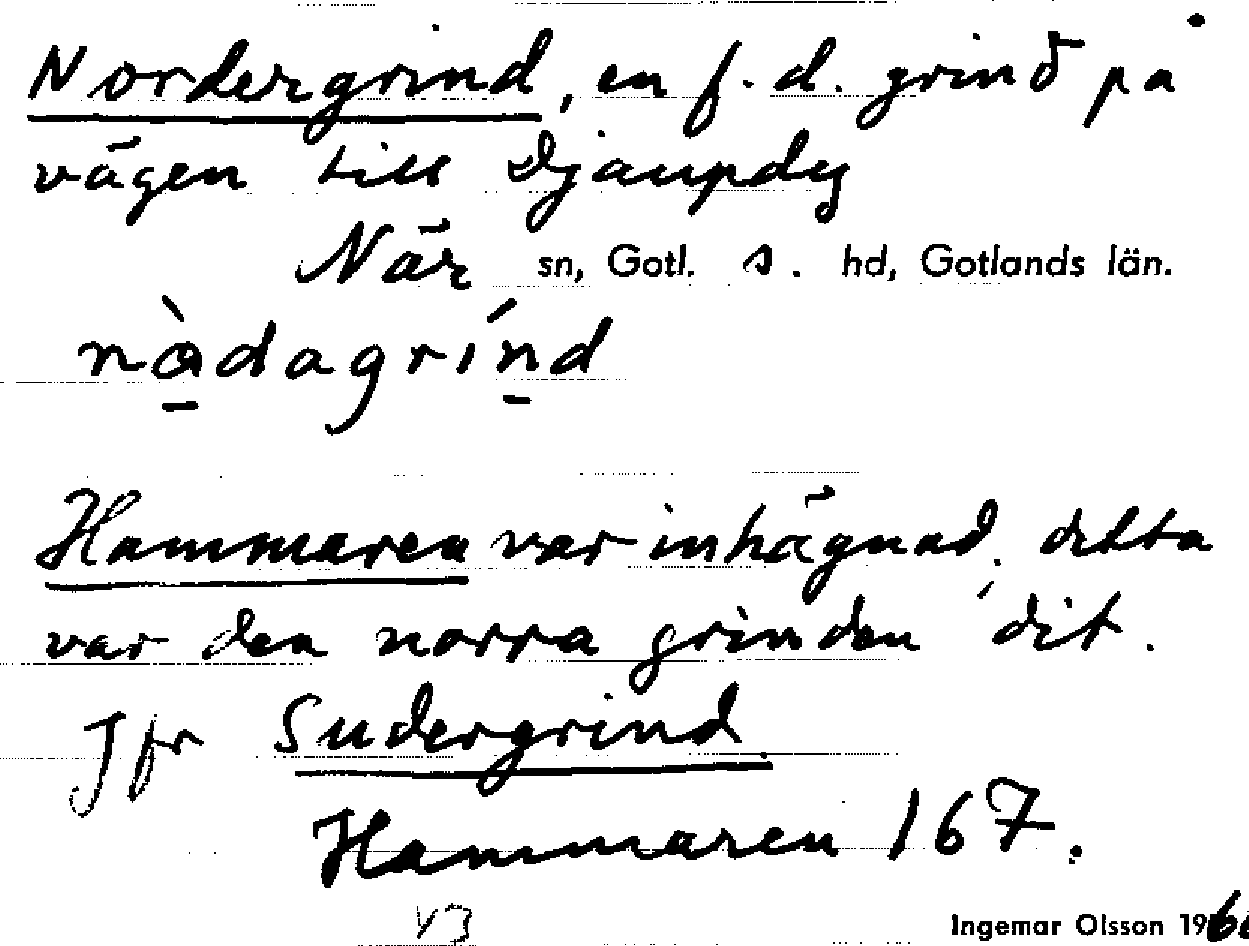 Nordergrind, en f.d. grind på
vägen till Djaupdy
När sn, Gotl. s. hd, Gotlands län.
nà̱dagríṉd
Hammaren var inhägnad, detta
var den norra grinden dit.
Jfr Sudergrind
Hammaren 167.
Ingemar Olsson 19